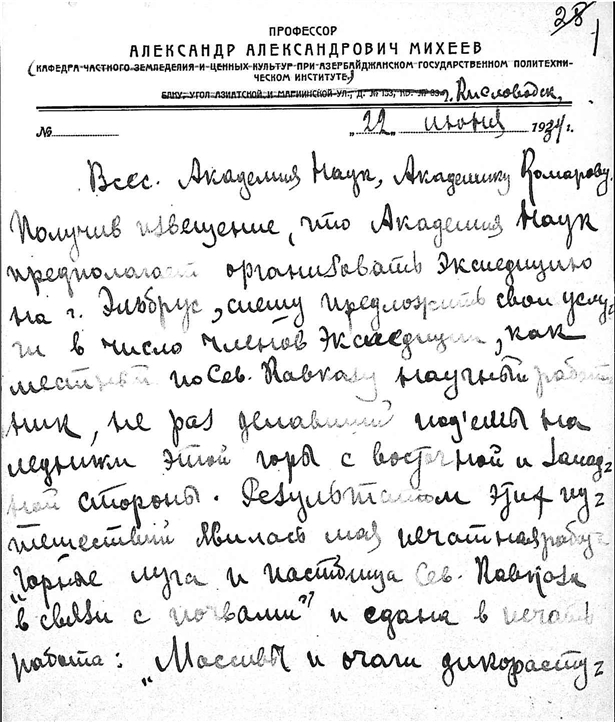 28
1
ПРОФЕССОР
АЛЕКСАНДР АЛЕКСАНДРОВИЧ МИХЕЕВ
(КАФЕДРА ЧАСТНОГО ЗЕМЛЕДЕЛИЯ И ЦЕННЫХ КУЛЬТУР ПРИ АЗЕРБАЙДЖАНСКОМ ГОСУДАРСТВЕННОМ ПОЛИТЕХНИ-
ЧЕСКОМ ИНСТИТУТЕ)
БАКУ, УГОЛ АЗИАТСКОЙ И МАРИИНСКОЙ УЛ., Д. № 153, КВ. № г. Кисловодск,
№ „22 июня 1934 г.
Всес. Академия Наук, Академику Комарову.
Получив извещение, что Академия Наук
предполагает организовать Экспедицию
на г. Эльбрус, спешу предложить свои услу-
ги в число членов Экспедиции, как
местный по Сев. Кавказу научный работ
ник, не раз делавший под'емы на
ледники этой горы с восточной и запад-
ной стороны. Результатом этих пу-
тешествий явилась моя печатная рабо-
„Горные луга и пастбища Сев. Кавказа
в связи с почвами" и сдана в печать
работа: „Массивы и очаги дикорасту-